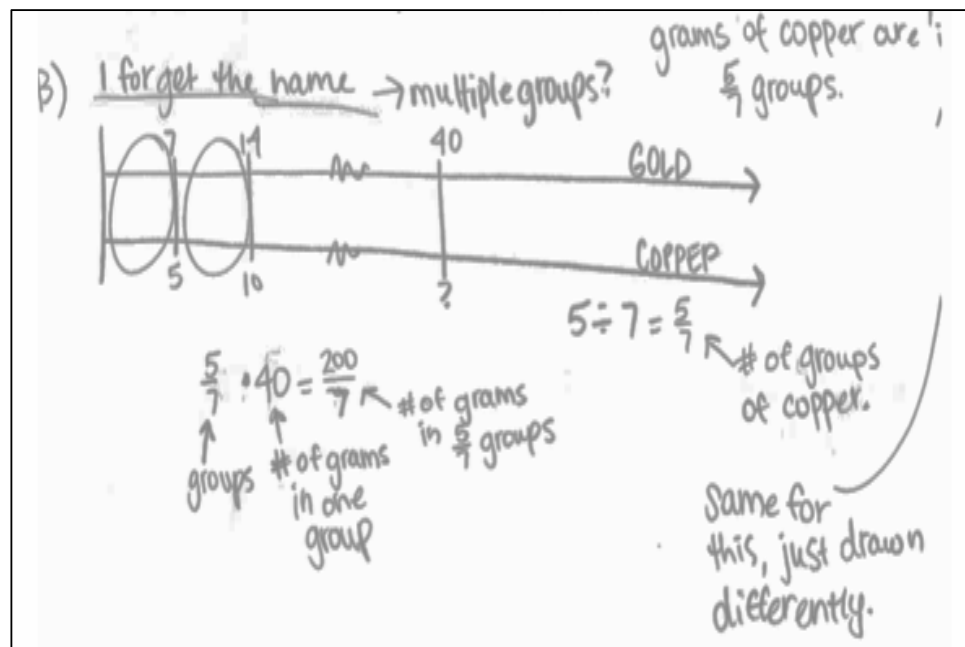 grams of copper are
5/7 groups.
B) I forget the name → multiple groups?
7 14 40
GOLD
COPPER
5 10 ?
5 ÷ 7 = 5/7
# of groups
of copper.
5/7 · 40 = 200/7
# of grams
in 5/7 groups
groups
# of grams
in one
group
Same for
this, just drawn
differently.